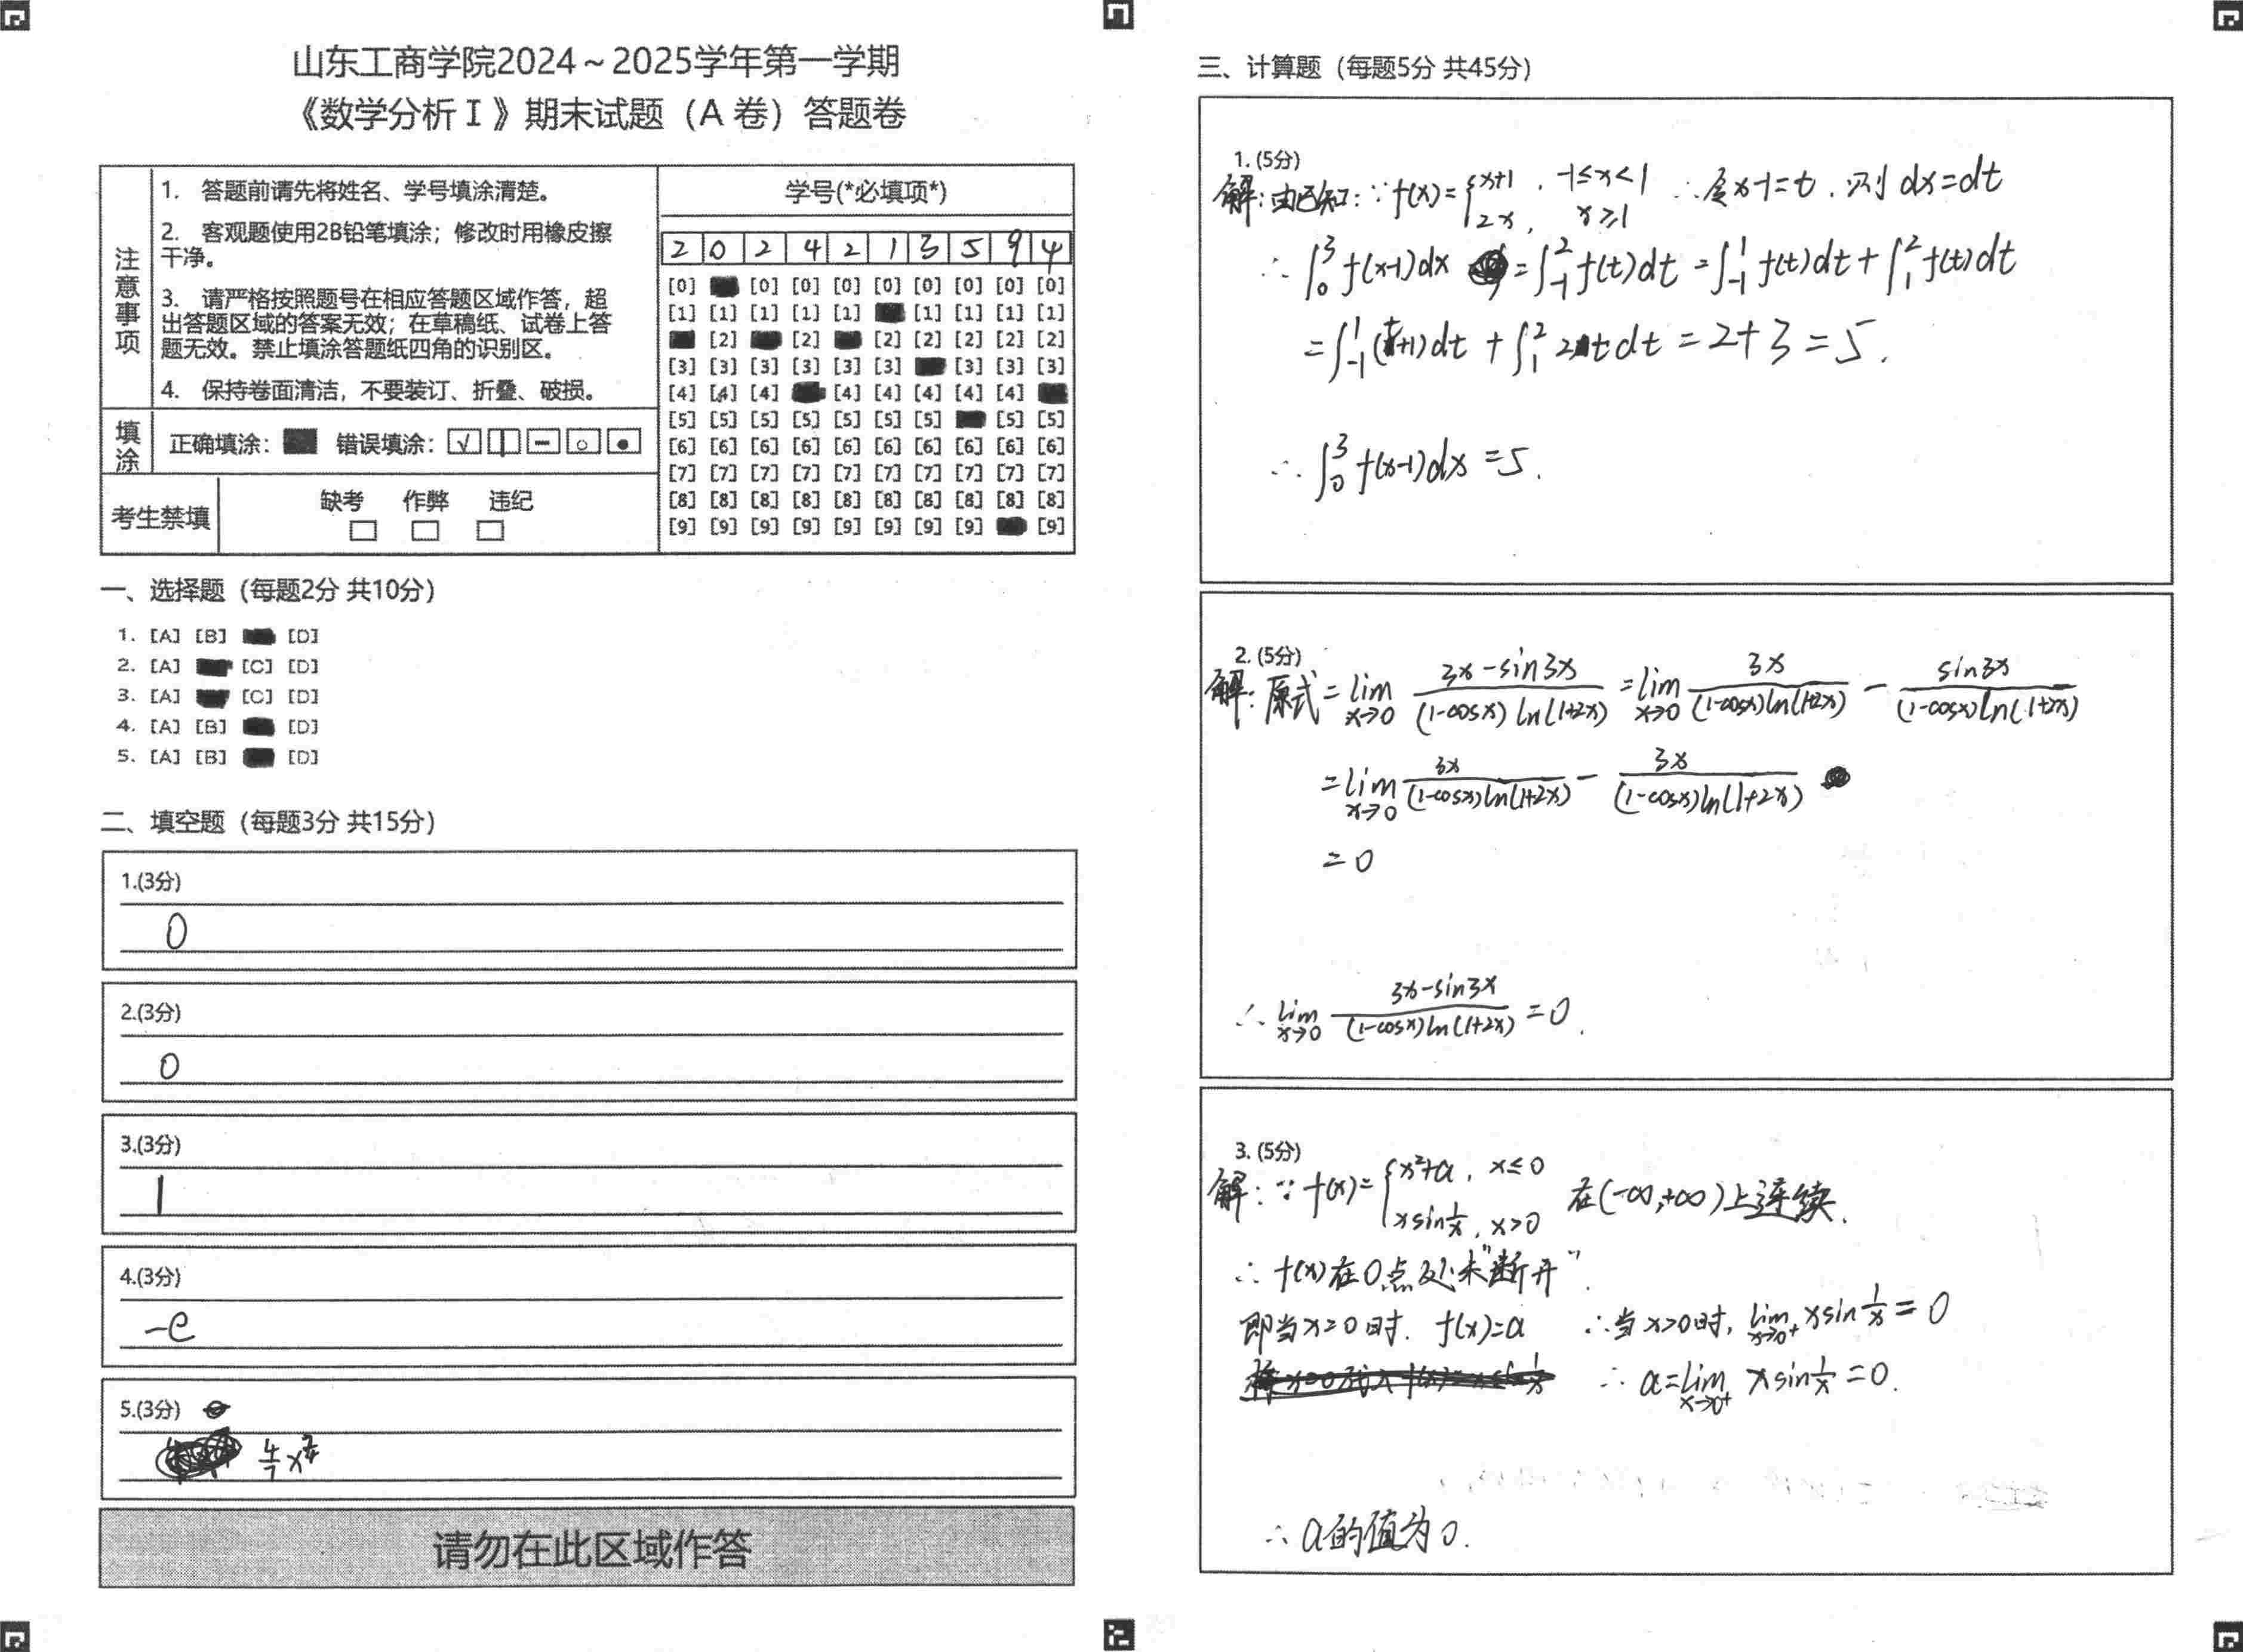 山东工商学院2024～2025学年第一学期
《数学分析 I 》期末试题（A 卷）答题卷
注意事项
1. 答题前请先将姓名、学号填涂清楚。
2. 客观题使用2B铅笔填涂；修改时用橡皮擦
干净。
3. 请严格按照题号在相应答题区域作答，超
出答题区域的答案无效；在草稿纸、试卷上答
题无效。禁止填涂答题纸四角的识别区。
4. 保持卷面清洁，不要装订、折叠、破损。
填涂 正确填涂： 错误填涂： √
考生禁填 缺考 作弊 违纪
学号(*必填项*)
2 0 2 4 2 1 3 5 9 4
[0] [0] [0] [0] [0] [0] [0] [0] [0]
[1] [1] [1] [1] [1] [1] [1] [1] [1]
[2] [2] [2] [2] [2] [2] [2]
[3] [3] [3] [3] [3] [3] [3] [3] [3]
[4] [4] [4] [4] [4] [4] [4] [4]
[5] [5] [5] [5] [5] [5] [5] [5] [5]
[6] [6] [6] [6] [6] [6] [6] [6] [6] [6]
[7] [7] [7] [7] [7] [7] [7] [7] [7] [7]
[8] [8] [8] [8] [8] [8] [8] [8] [8] [8]
[9] [9] [9] [9] [9] [9] [9] [9] [9]
一、选择题（每题2分 共10分）
1. [A] [B] [D]
2. [A] [C] [D]
3. [A] [C] [D]
4. [A] [B] [D]
5. [A] [B] [D]
二、填空题（每题3分 共15分）
1.(3分)
0
2.(3分)
0
3.(3分)
1
4.(3分)
-e
5.(3分)
4/7 x^(7/4)
请勿在此区域作答
三、计算题（每题5分 共45分）
1. (5分)
解: 由已知: ∵ f(x)={x+1, -1≤x<1; 2x, x≥1 ∴令x-1=t. 则 dx=dt
∴ ∫_0^3 f(x-1)dx = ∫_{-1}^2 f(t)dt = ∫_{-1}^1 f(t)dt + ∫_1^2 f(t)dt
= ∫_{-1}^1 (t+1)dt + ∫_1^2 2t dt = 2+3 = 5.
∴ ∫_0^3 f(x-1)dx = 5.
2. (5分)
解: 原式 = lim_{x→0} (3x-sin3x)/((1-cosx)ln(1+2x)) = lim_{x→0} 3x/((1-cosx)ln(1+2x)) - sin3x/((1-cosx)ln(1+2x))
= lim_{x→0} 3x/((1-cosx)ln(1+2x)) - 3x/((1-cosx)ln(1+2x))
= 0
∴ lim_{x→0} (3x-sin3x)/((1-cosx)ln(1+2x)) = 0.
3. (5分)
解: ∵ f(x)={x²+a, x≤0; xsin1/x, x>0 在(-∞,+∞)上连续.
∴ f(x)在0点处未"断开".
即当x=0时. f(x)=a ∴当x>0时, lim_{x→0+} xsin1/x = 0
∴ a=lim_{x→0+} xsin1/x = 0.
∴ a的值为0.